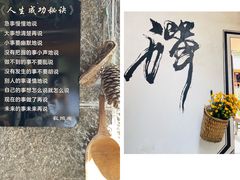 《人生成功秘诀》
急事慢慢地说
大事想清楚再说
小事要幽默地说
没有把握的事小声地说
做不到的事不要乱说
没有发生的事不要胡说
别人的事谨慎地说
自己的事想怎么说就怎么说
现在的事做了再说
未来的事未来再说